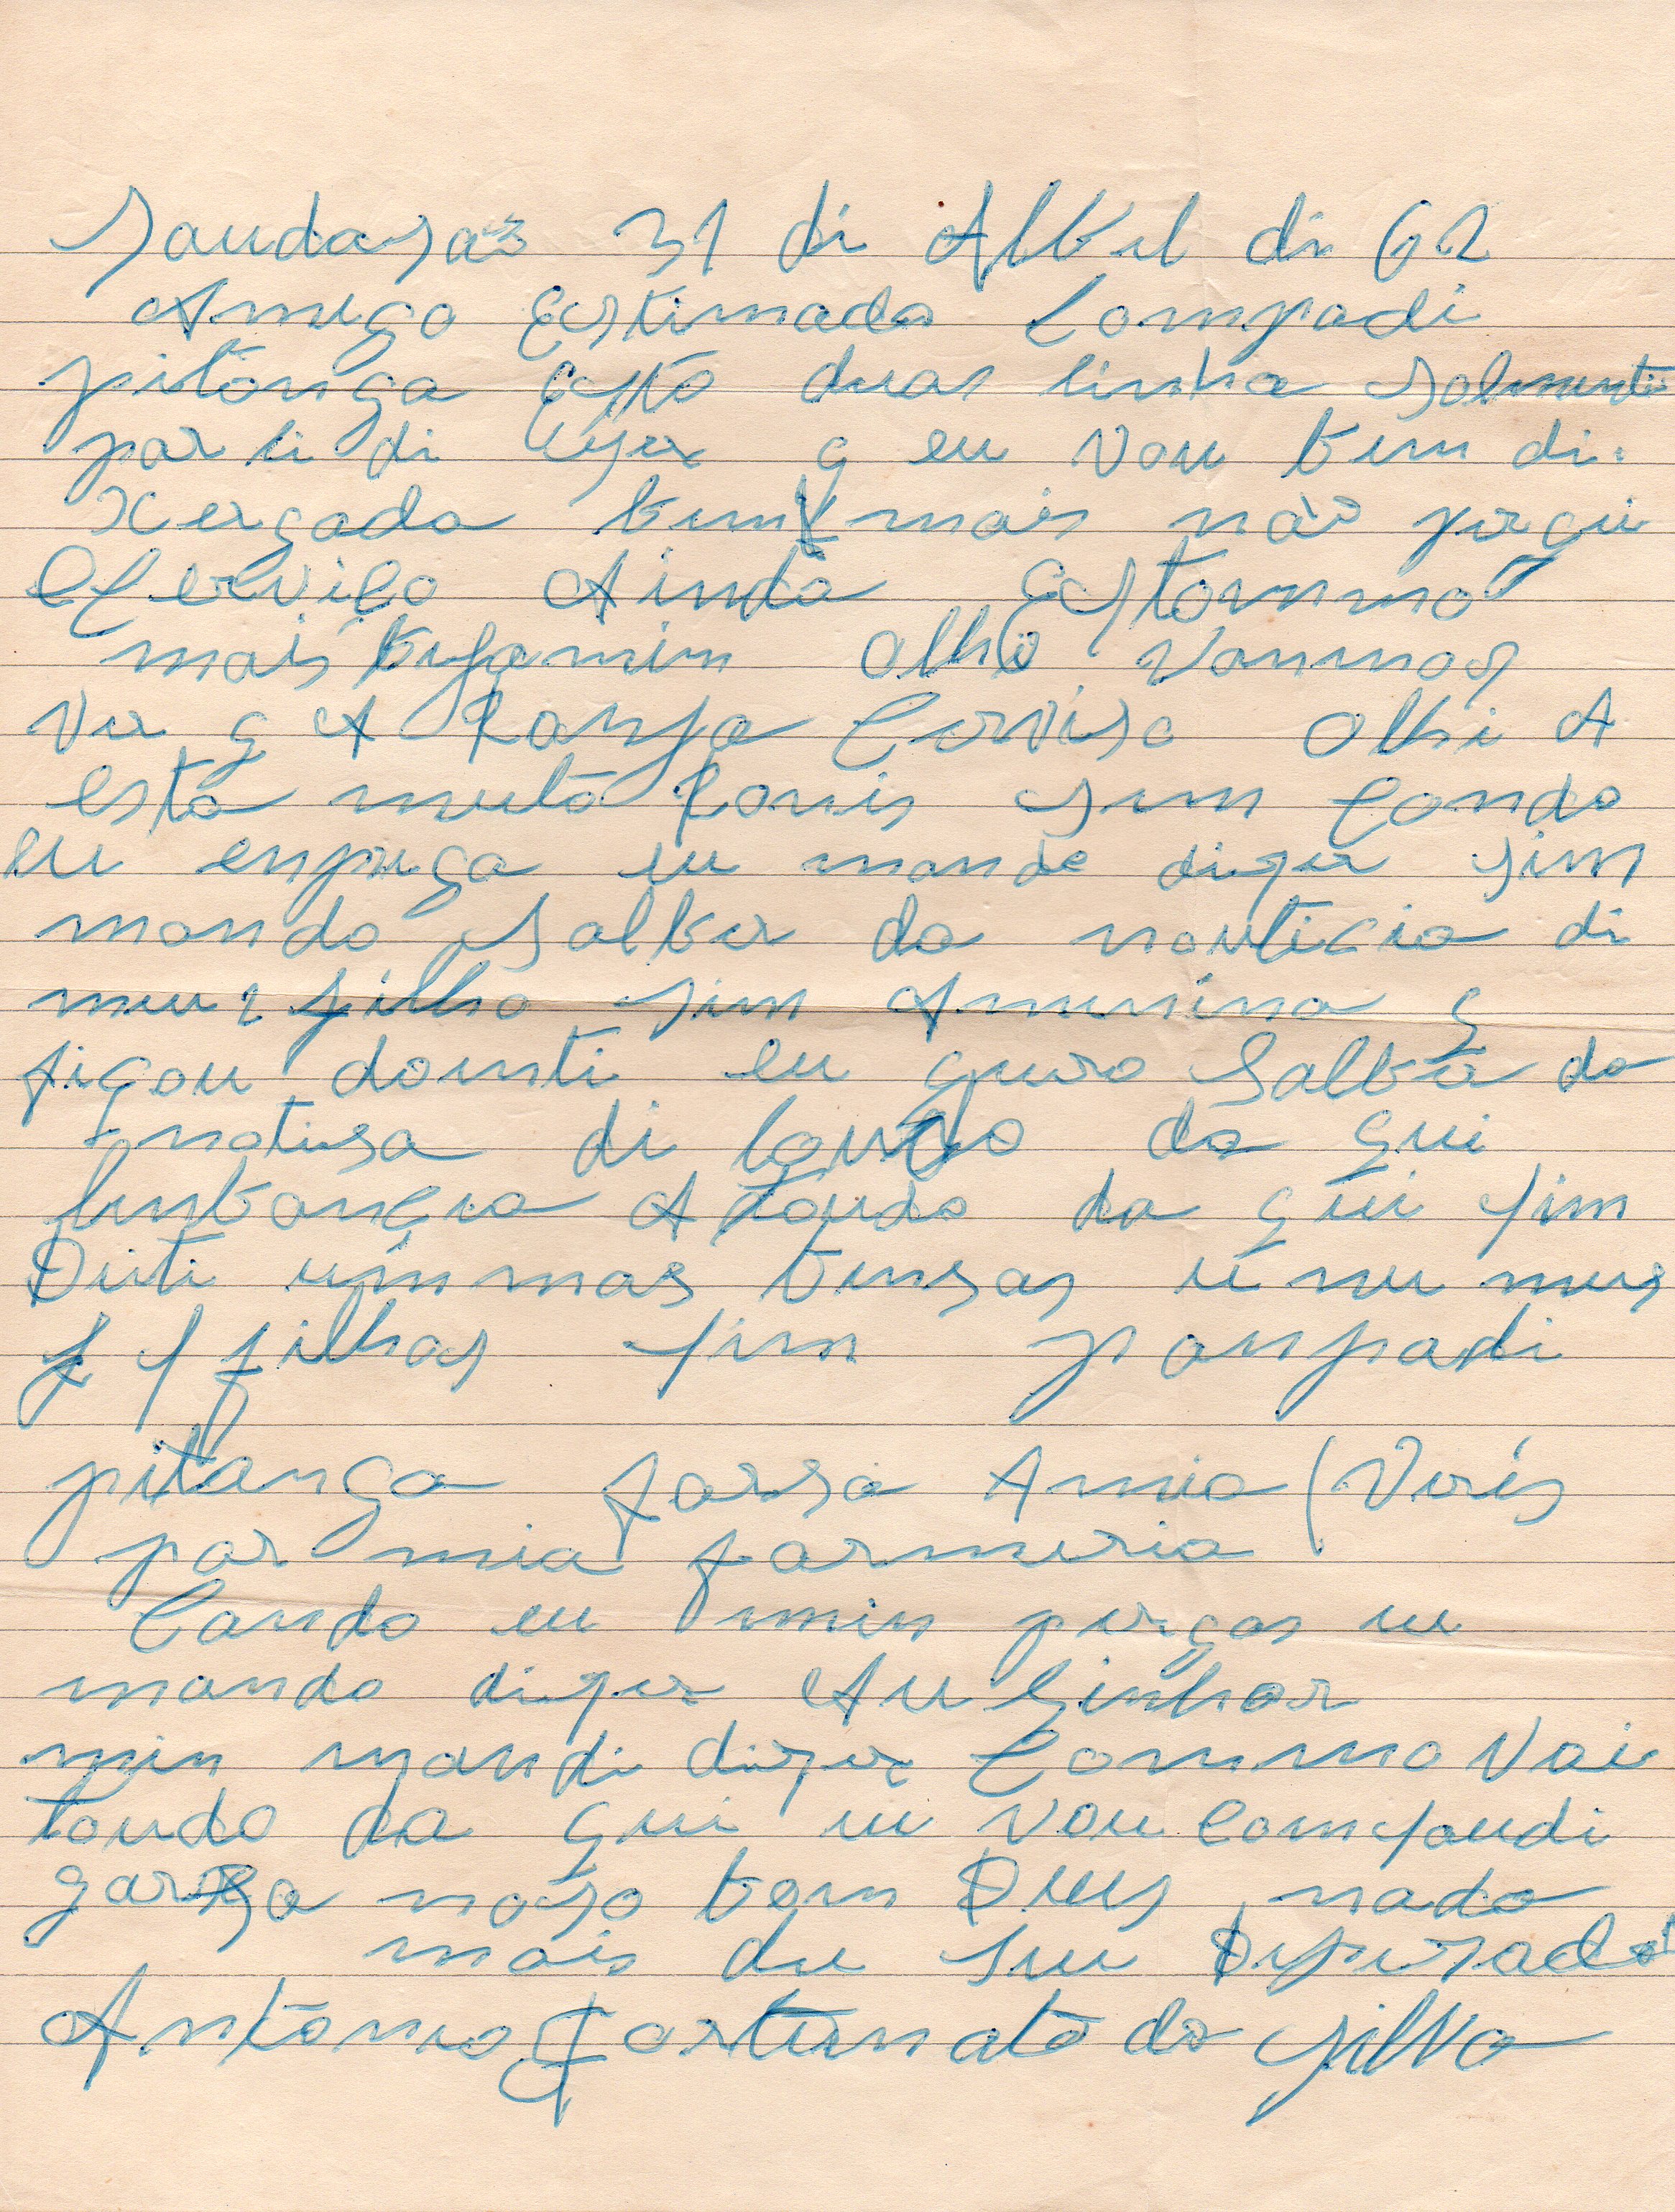 Saudasaõ 31 di Albril di 62
Amigo Estimado Compadi
pitanga Esta duas linha solmenti
par li di zer q eu vou bem di.
Xergada bem mais não pegui
Cerviço Ainda Estoummo
mais bejamin olhe vammos
ver q A Ranja Cerviso olhi A
esta muito Roins sim Condo
eu enpriga eu mande dizer sim
mondo salber da nouticia di
meu 2 filho sim Amenina q
ficou dounti eu quero Salber da
notisa di louro da qui
linbança A toudo da qui sim
Deiti ummas bensas ú nu meus
filhos sim panpadi
pitanga farsa Amia Veris
par mia farmeria
Cando eu min pregas eu
mando dizer Au Sinhor
min mandi dizer Commo vai
toudo da qui eu vou com saudi
garsa noso bom Deus nada
mais du seu Disperado
Antonio Fortunato da silva